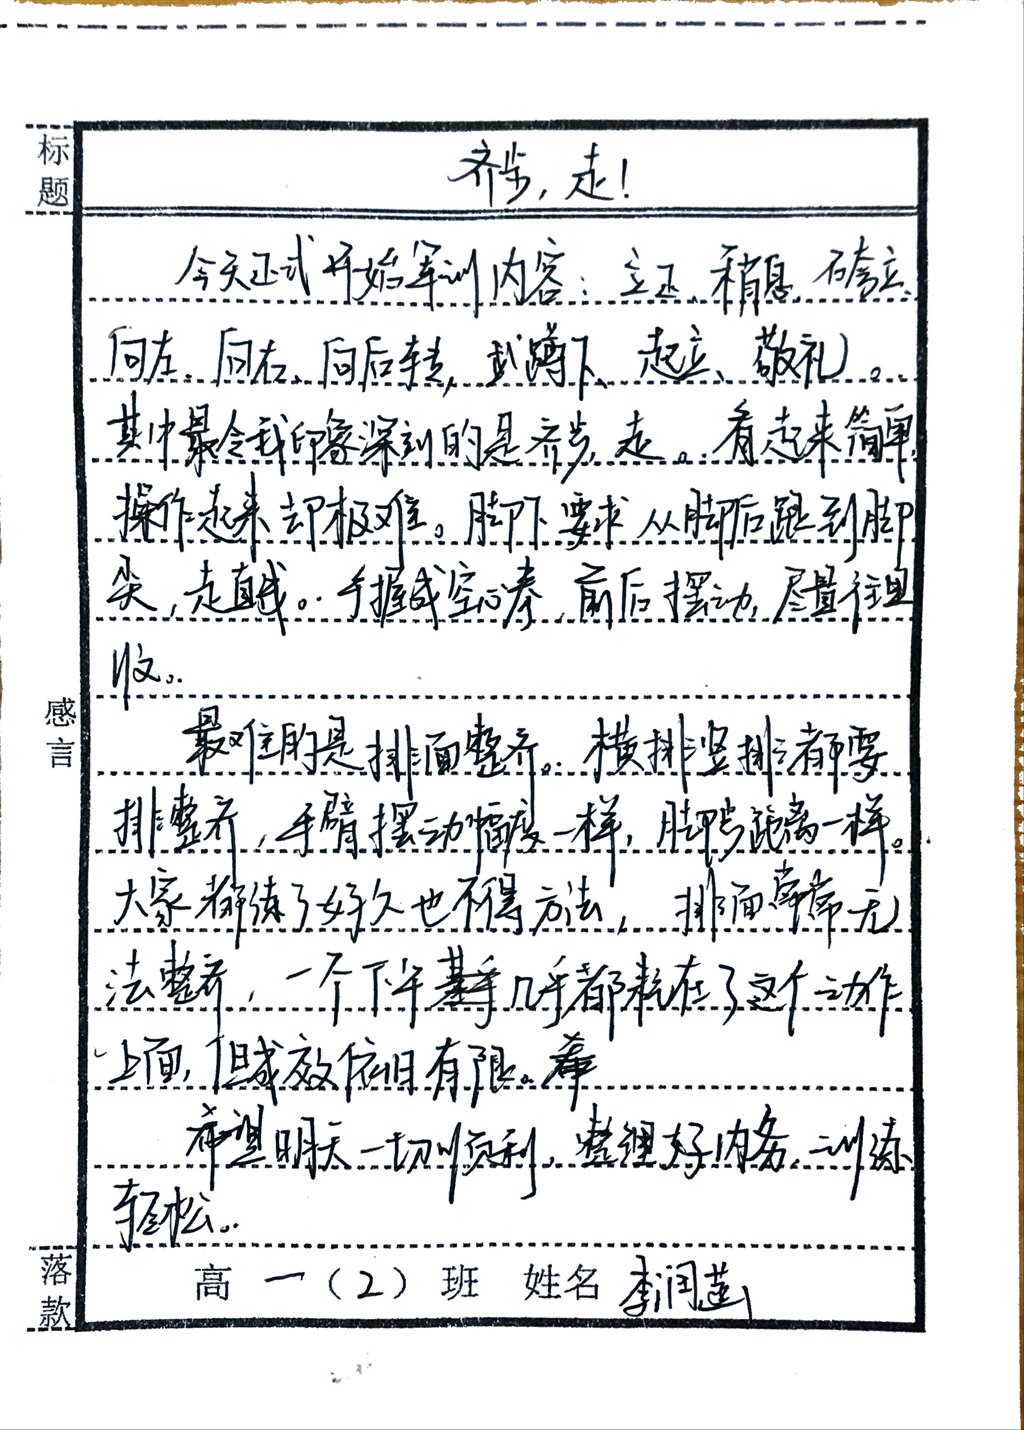 标题
齐步，走！
今天正式开始军训内容：立正、稍息、跨立、
向左、向右、向后转，蹲下、起立、敬礼。
其中最令我印象深刻的是齐步走。看起来简单，
操作起来却极难。脚下要求从脚后跟到脚
尖，走直线。手握成空心拳，前后摆动，尽量往里
收。
感言
最难的是排面整齐。横排竖排都要
排整齐，手臂摆动幅度一样，脚步距离一样。
大家都练了好久也不得方法，排面常常无
法整齐，一个下午几乎都耗在了这个动作
上面，但成效依旧有限。
希望明天一切顺利，整理好内务，训练
轻松。
落款
高一（2）班 姓名 李润莲